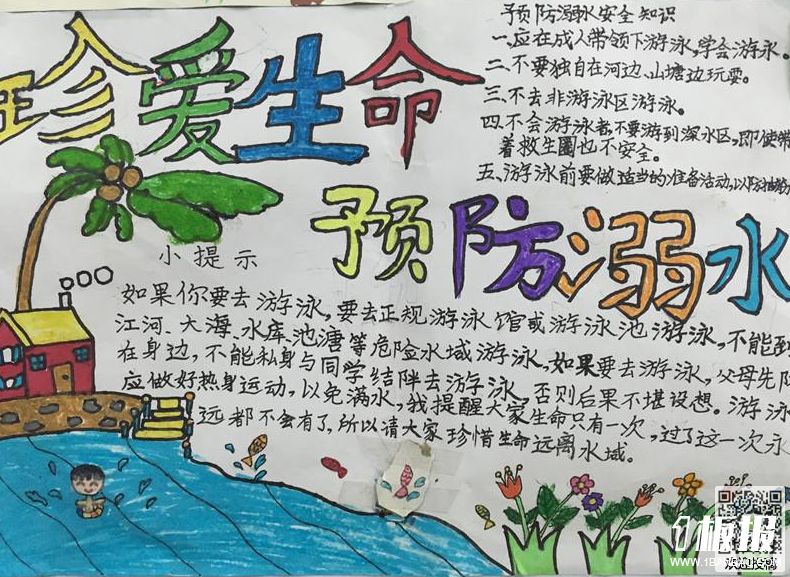 珍爱生命
预防溺水
预防溺水安全知识
一、应在成人带领下游泳,学会游泳。
二、不要独自在河边、山塘边玩耍。
三、不去非游泳区游泳。
四、不会游泳者,不要游到深水区,即使带
着救生圈也不安全。
五、游泳前要做适当的准备活动,以防抽筋
小提示
如果你要去游泳,要去正规游泳馆或游泳池游泳,不能到
江河、大海、水库、池塘等危险水域游泳,如果要去游泳,父母先陪
在身边,不能私身与同学结陴去游泳,否则后果不堪设想。游泳
应做好热身运动,以免满水,我提醒大家生命只有一次,过了这一次永
远都不会有了,所以请大家珍惜生命远离水域。
板报
www.1BANBAO.COM
欢迎投稿